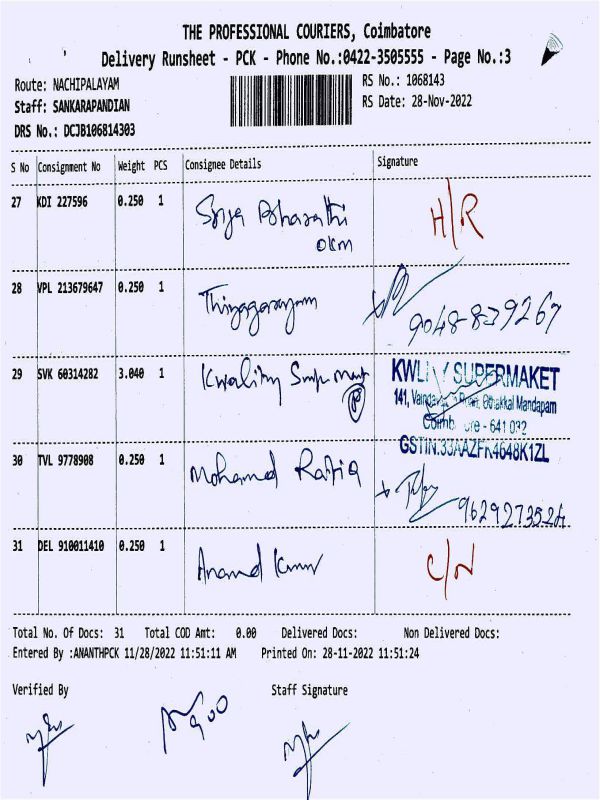 THE PROFESSIONAL COURIERS, Coimbatore
Delivery Runsheet - PCK - Phone No.:0422-3505555 - Page No.:3
Route: NACHIPALAYAM
RS No.: 1068143
Staff: SANKARAPANDIAN
RS Date: 28-Nov-2022
DRS No.: DCJB106814303
S No Consignment No Weight PCS Consignee Details Signature
27 KDI 227596 0.250 1 Bharathi H/R
28 VPL 213679647 0.250 1 Thiyagarayam
9048-839267
29 SVK 60314282 3.040 1 Kwality KWLI Y SUPERMAKET
141, Othakkal Mandapam
Coimb ore - 641 032
GSTIN.33AAZFK4648K1ZL
30 TVL 9778908 0.250 1 Mohamed Rafiq
9629273524
31 DEL 910011410 0.250 1 Anand Kumar C/N
Total No. Of Docs: 31 Total COD Amt: 0.00 Delivered Docs: Non Delivered Docs:
Entered By :ANANTHPCK 11/28/2022 11:51:11 AM Printed On: 28-11-2022 11:51:24
Verified By Staff Signature